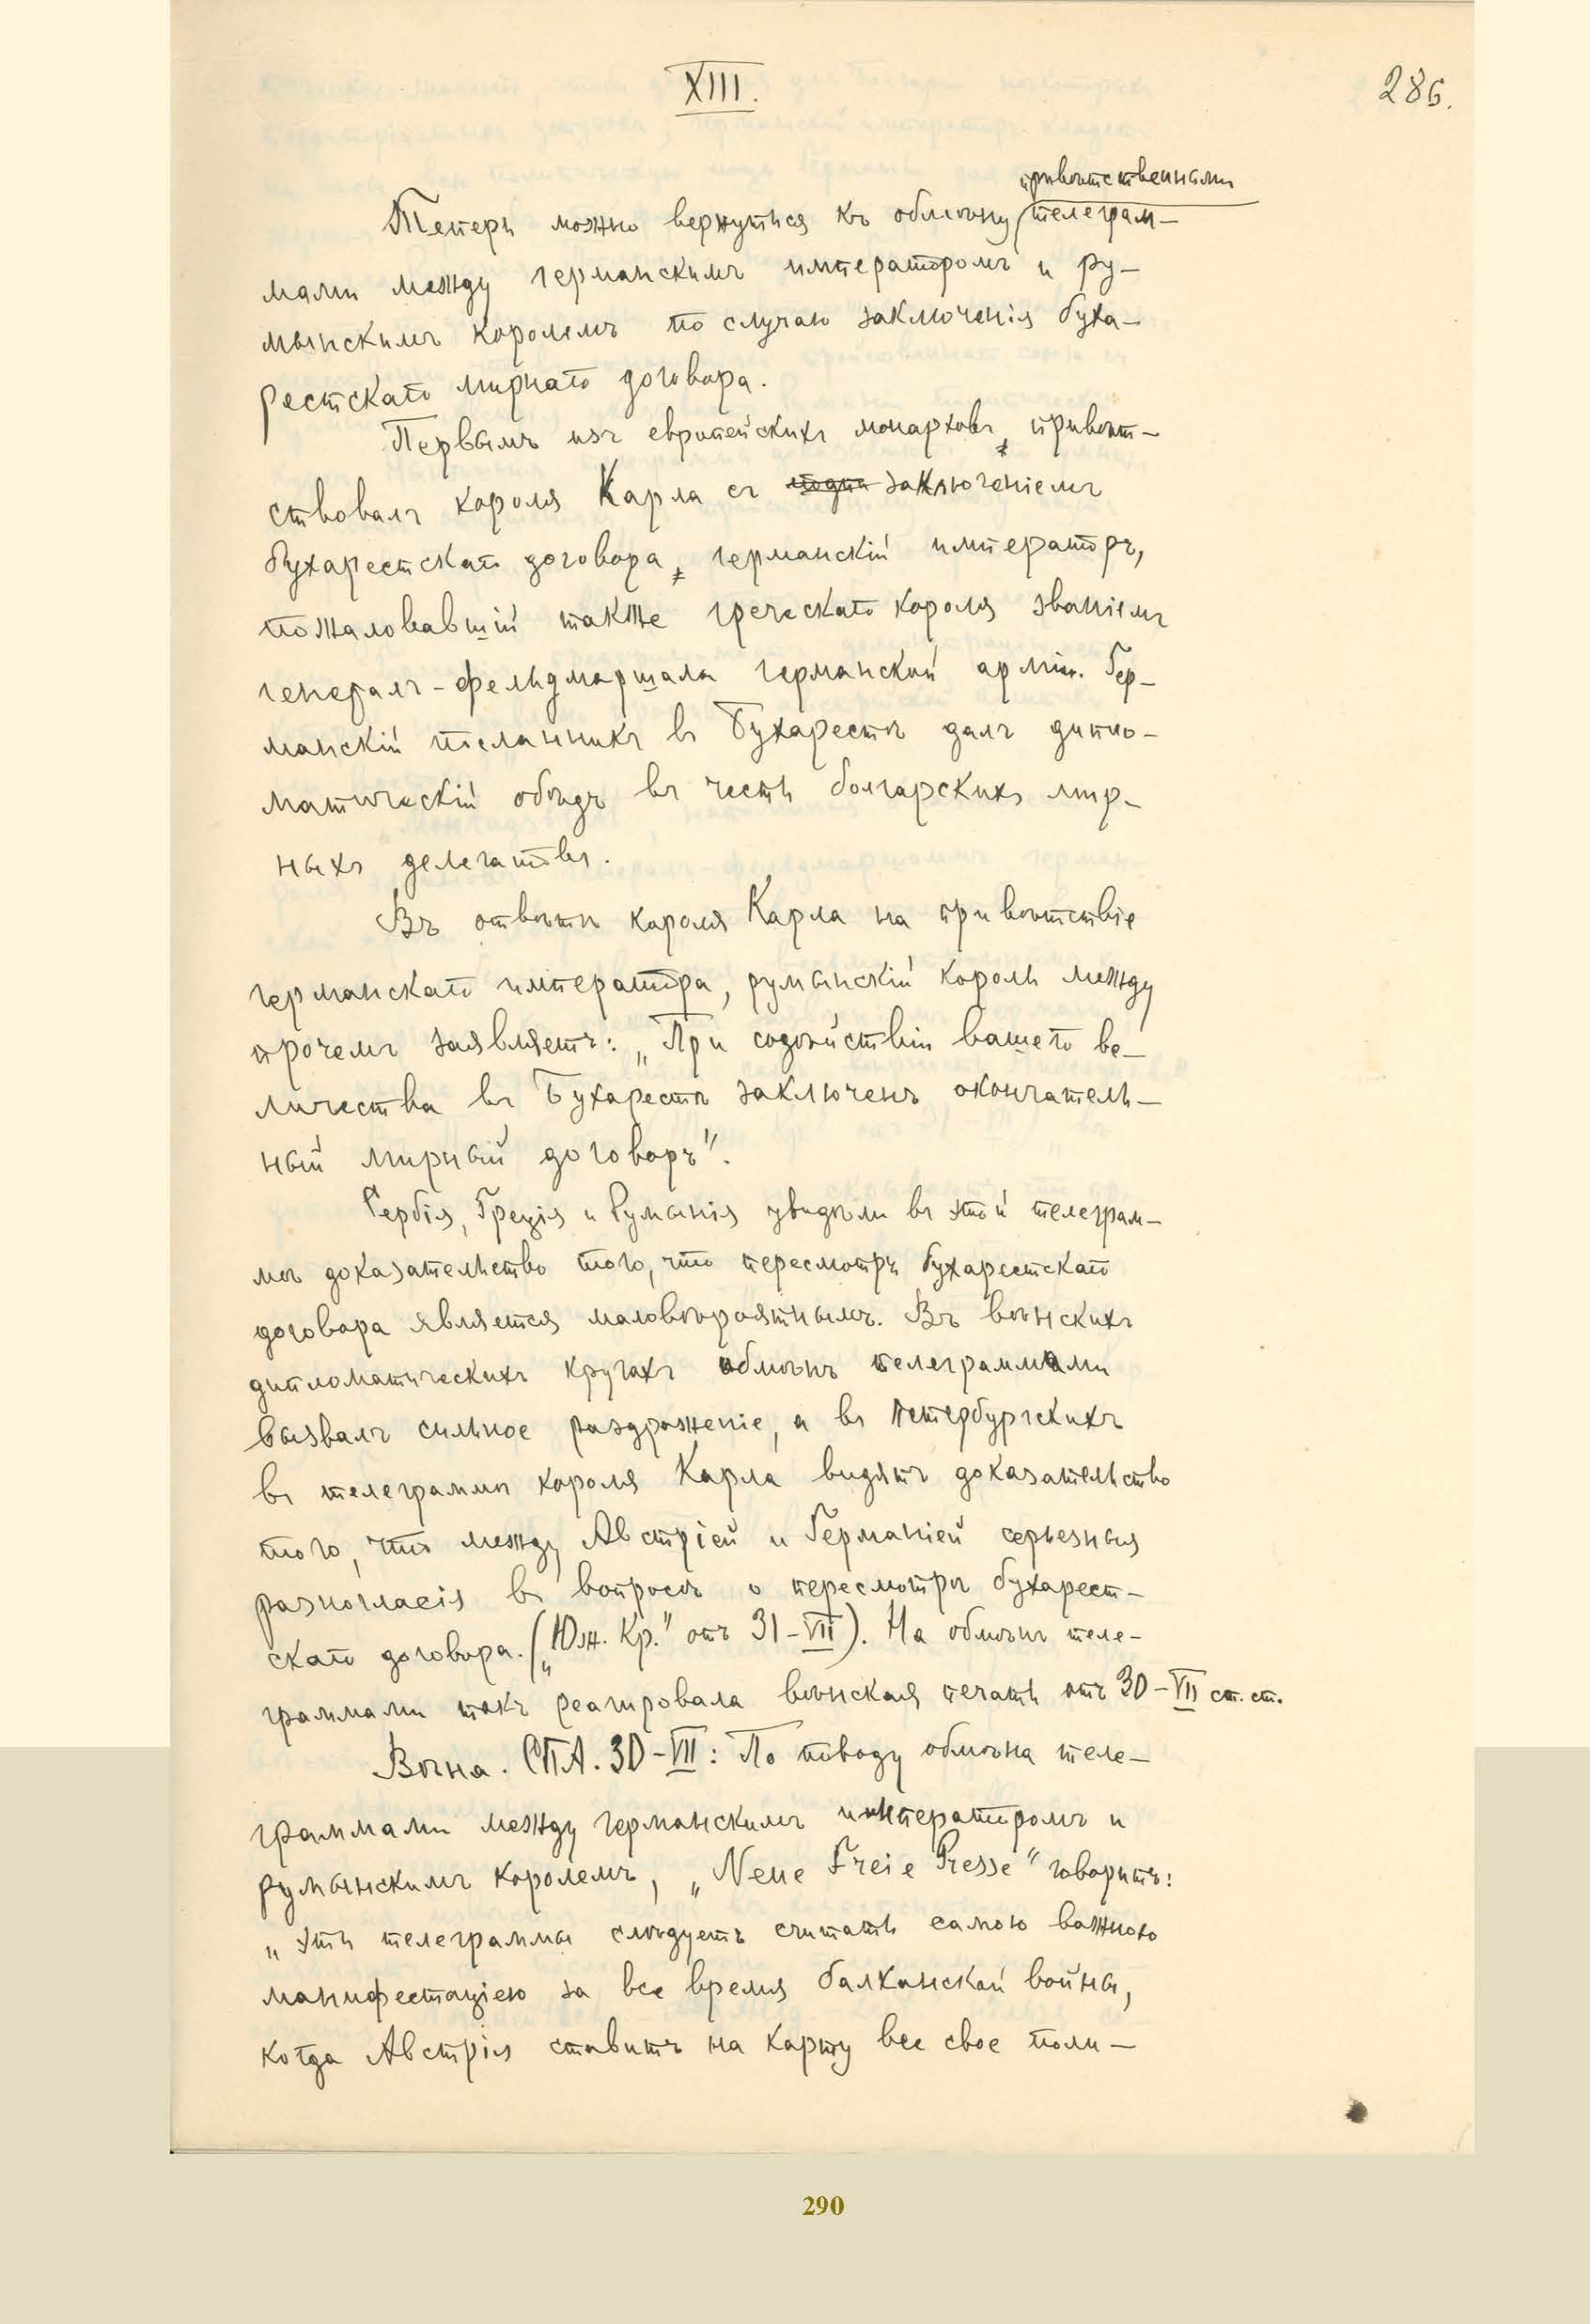 XIII.
286.
привѣтственными
Теперь можно вернуться къ обмѣну телеграм-
мами между германскимъ императоромъ и ру-
мынскимъ королемъ по случаю заключенія буха-
рестскаго мирнаго договора.
Первымъ изъ европейскихъ монарховъ, привѣт-
ствовалъ короля Карла съ заключеніемъ
бухарестскаго договора, германскій императоръ,
пожаловавшій также греческаго короля званіемъ
генералъ-фельдмаршала германской арміи. Гер-
манскій посланникъ въ Бухарестѣ далъ дипло-
матическій обѣдъ въ честь болгарскихъ мир-
ныхъ делегатовъ.
Въ отвѣтъ короля Карла на привѣтствіе
германскаго императора, румынскій король между
прочемъ заявляетъ: „При содѣйствіи вашего ве-
личества въ Бухарестѣ заключенъ окончатель-
ный мирный договоръ".
Сербія, Греція и Румынія увидѣли въ этой телеграм-
мѣ доказательство того, что пересмотръ бухарестскаго
договора является маловѣроятнымъ. Въ вѣнскихъ
дипломатическихъ кругахъ обмѣнъ телеграммами
вызвалъ сильное раздраженіе, а въ петербургскихъ
въ телеграммѣ короля Карла видятъ доказательство
того, что между Австріей и Германіей серьезныя
разногласія въ вопросѣ о пересмотрѣ бухарест-
скаго договора. („Юж. Кр." отъ 31-VII). На обмѣнъ теле-
граммами такъ реагировала вѣнская печать отъ 30-VII ст. ст.
Вѣна. СПА. 30-VII: По поводу обмѣна теле-
граммами между германскимъ императоромъ и
румынскимъ королемъ, „Neue Freie Presse" говоритъ:
„Эти телеграммы слѣдуетъ считать самою важною
манифестаціею за все время балканской войны,
когда Австрія ставитъ на карту все свое поли-
290